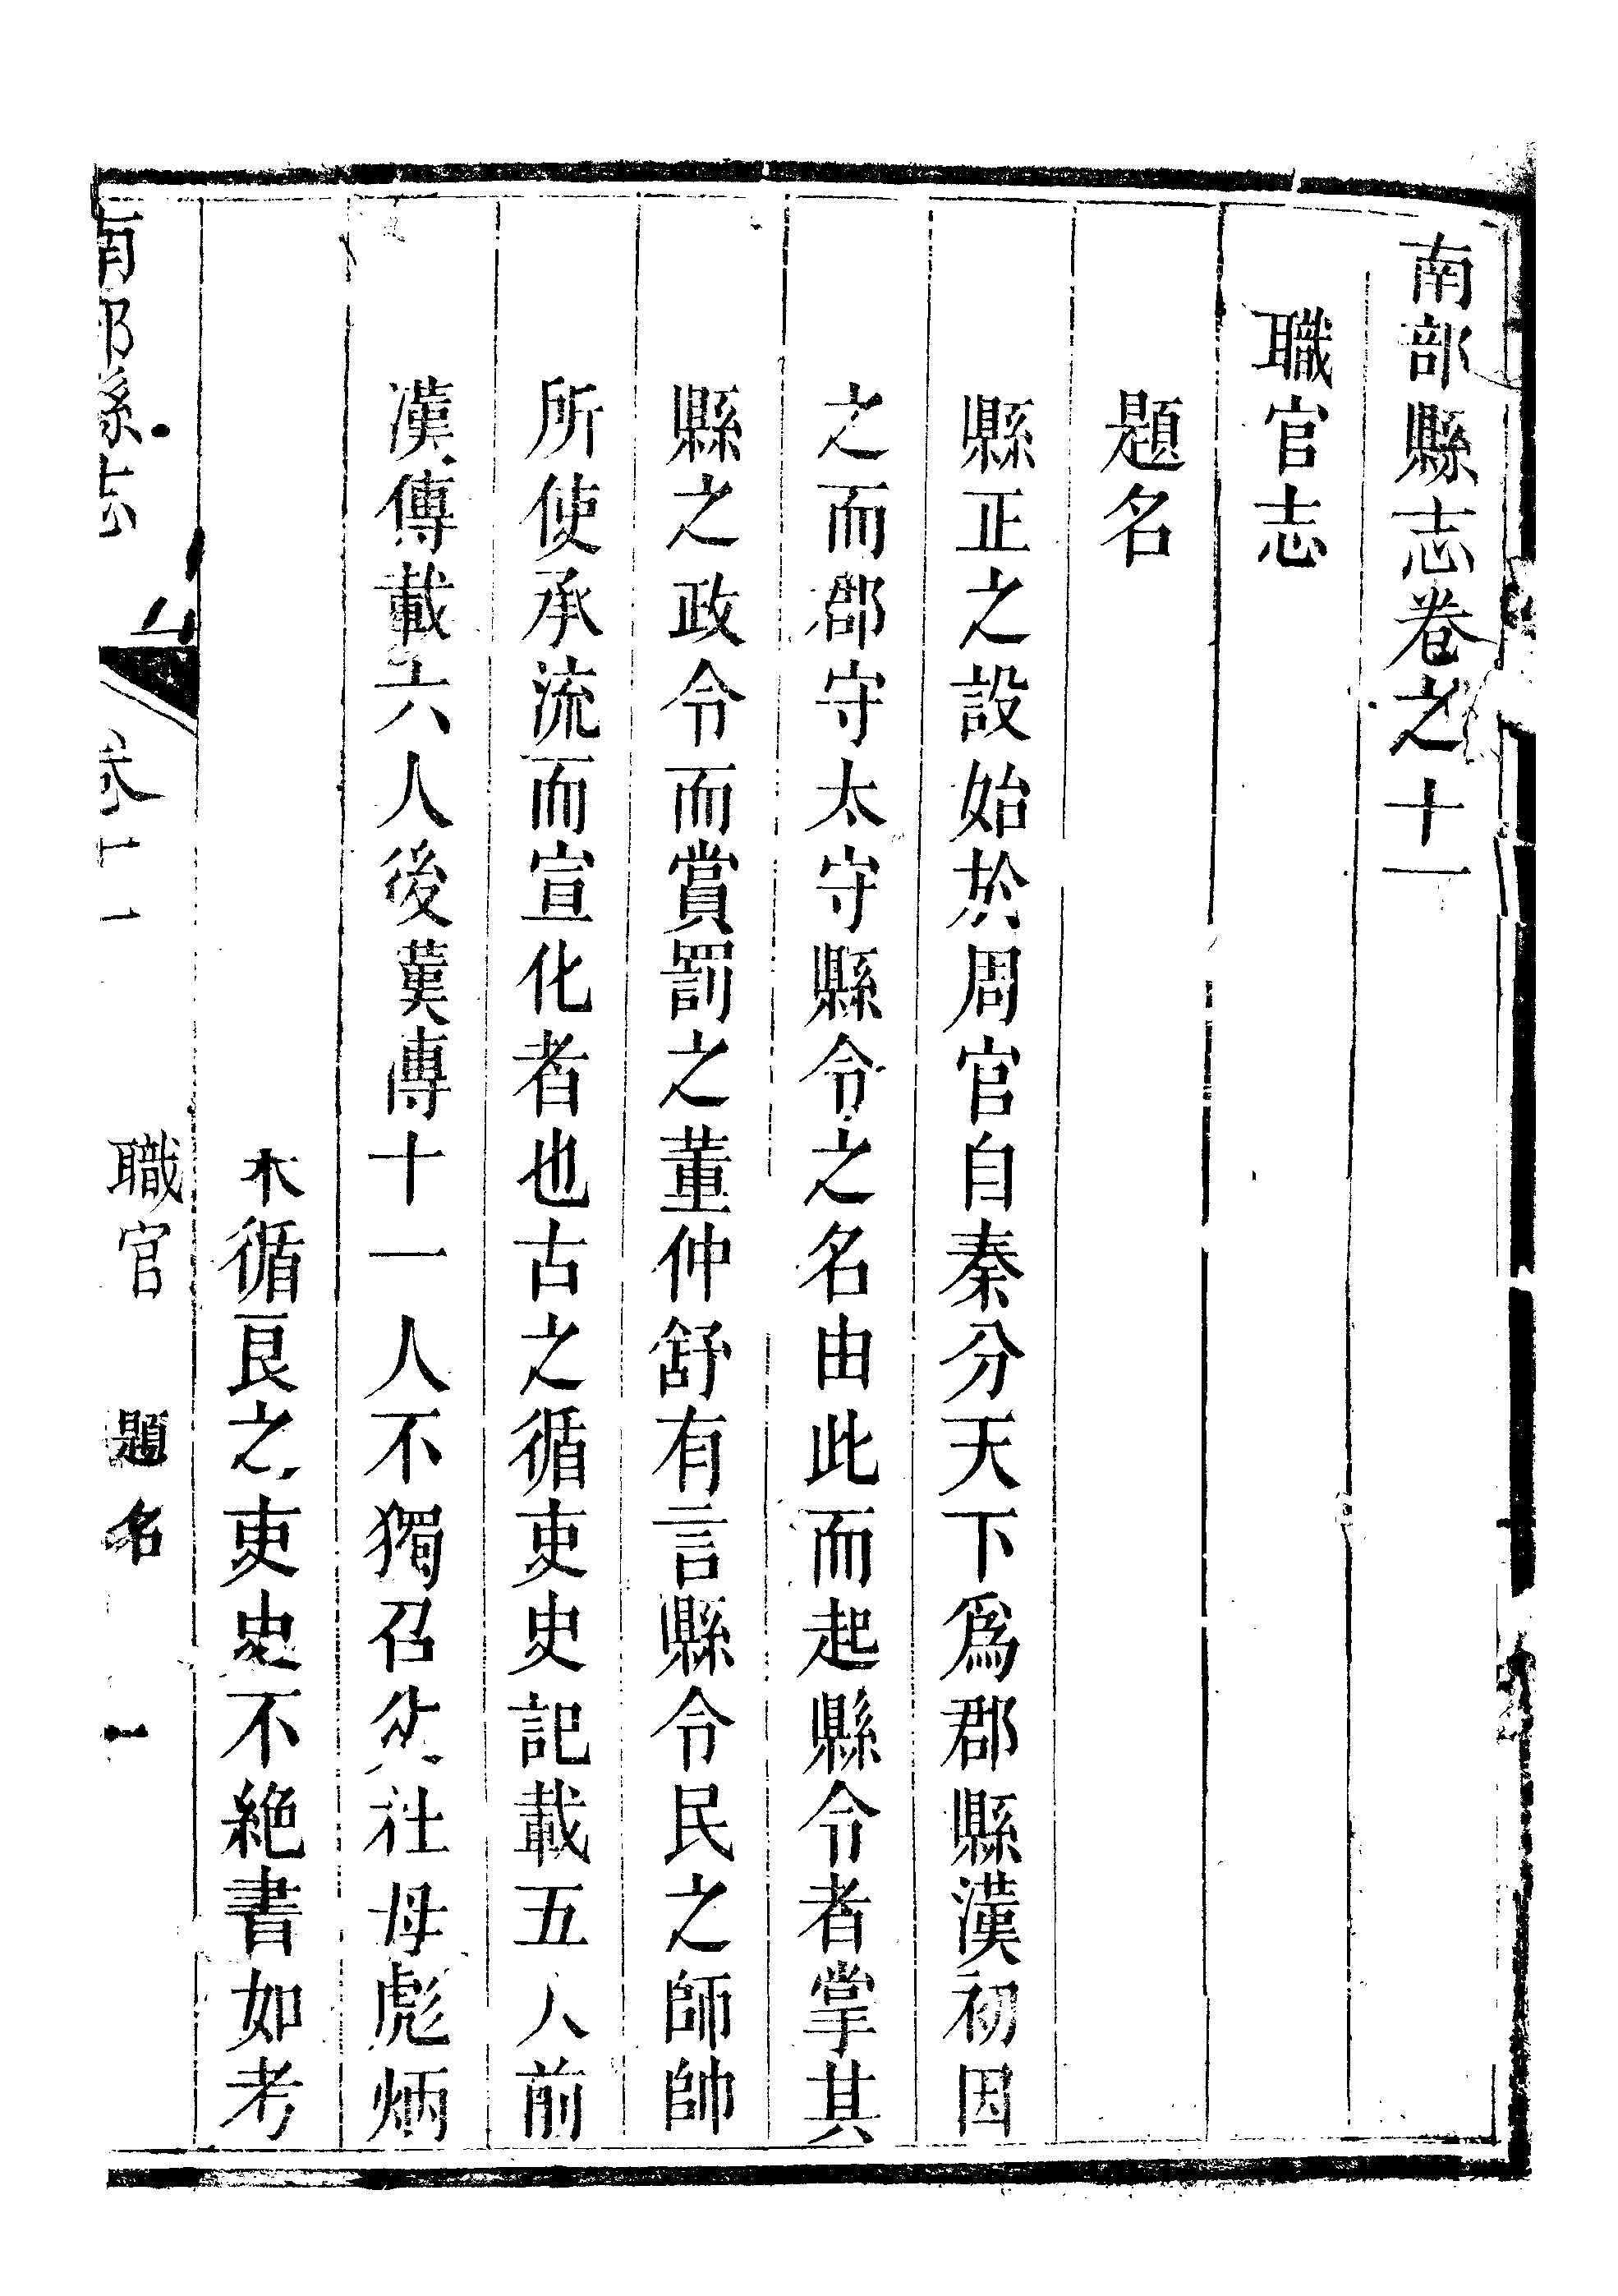 南部縣志卷之十一
職官志
題名
縣正之設始於周官自秦分天下爲郡縣漢初因
之而郡守太守縣令之名由此而起縣令者掌其
縣之政令而賞罰之董仲舒有言縣令民之師帥
所使承流而宣化者也古之循吏史記載五人前
漢傳載六人後漢傳十一人不獨召父杜母彪炳
循良之吏史不絶書如考
南部縣志 卷十一 職官 題名 一